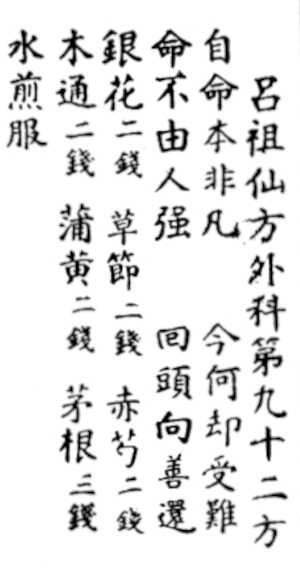 呂祖仙方外科第九十二方
自命本非凡 今何却受難
命不由人强 回頭向善還
銀花二錢 草節二錢 赤芍二錢
木通二錢 蒲黄二錢 茅根三錢
水煎服